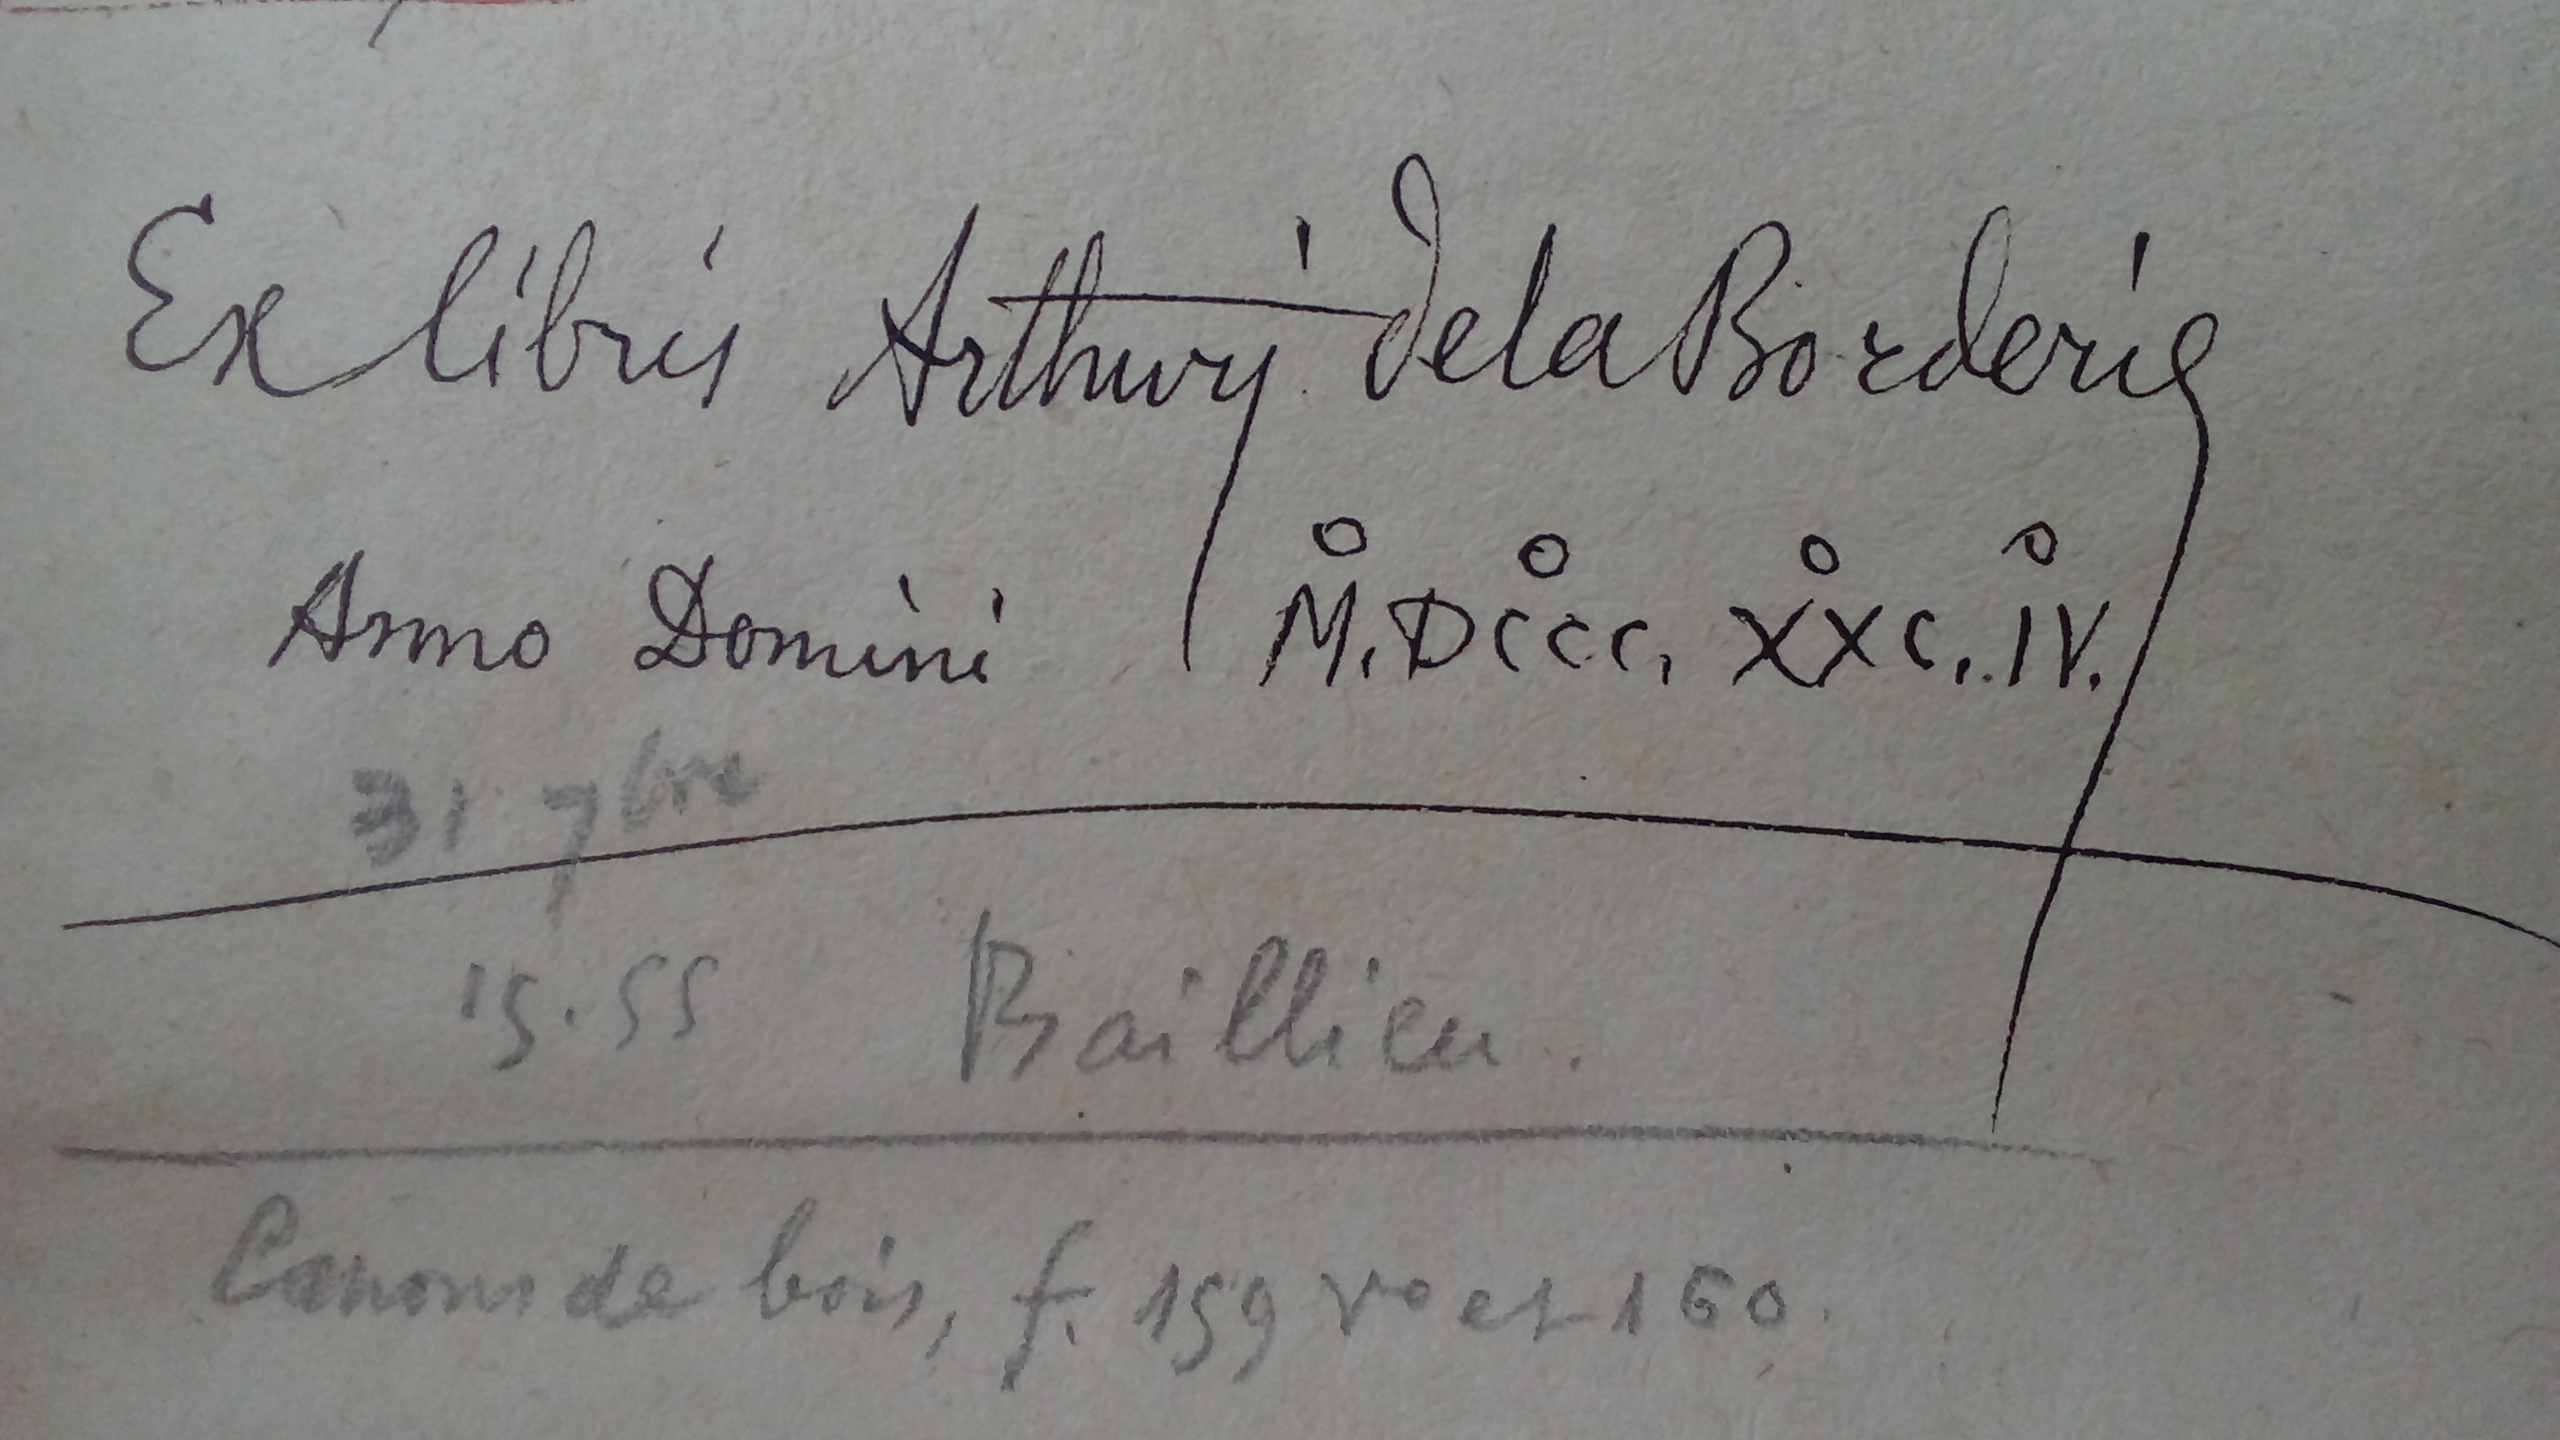 Ex libris Arthurj de la Borderie
Anno Domini M°. DCCC°. XXC°. IV°.
31 7bre
15.55 Baillieu.
Canons de bois, f. 159 vo et 160.